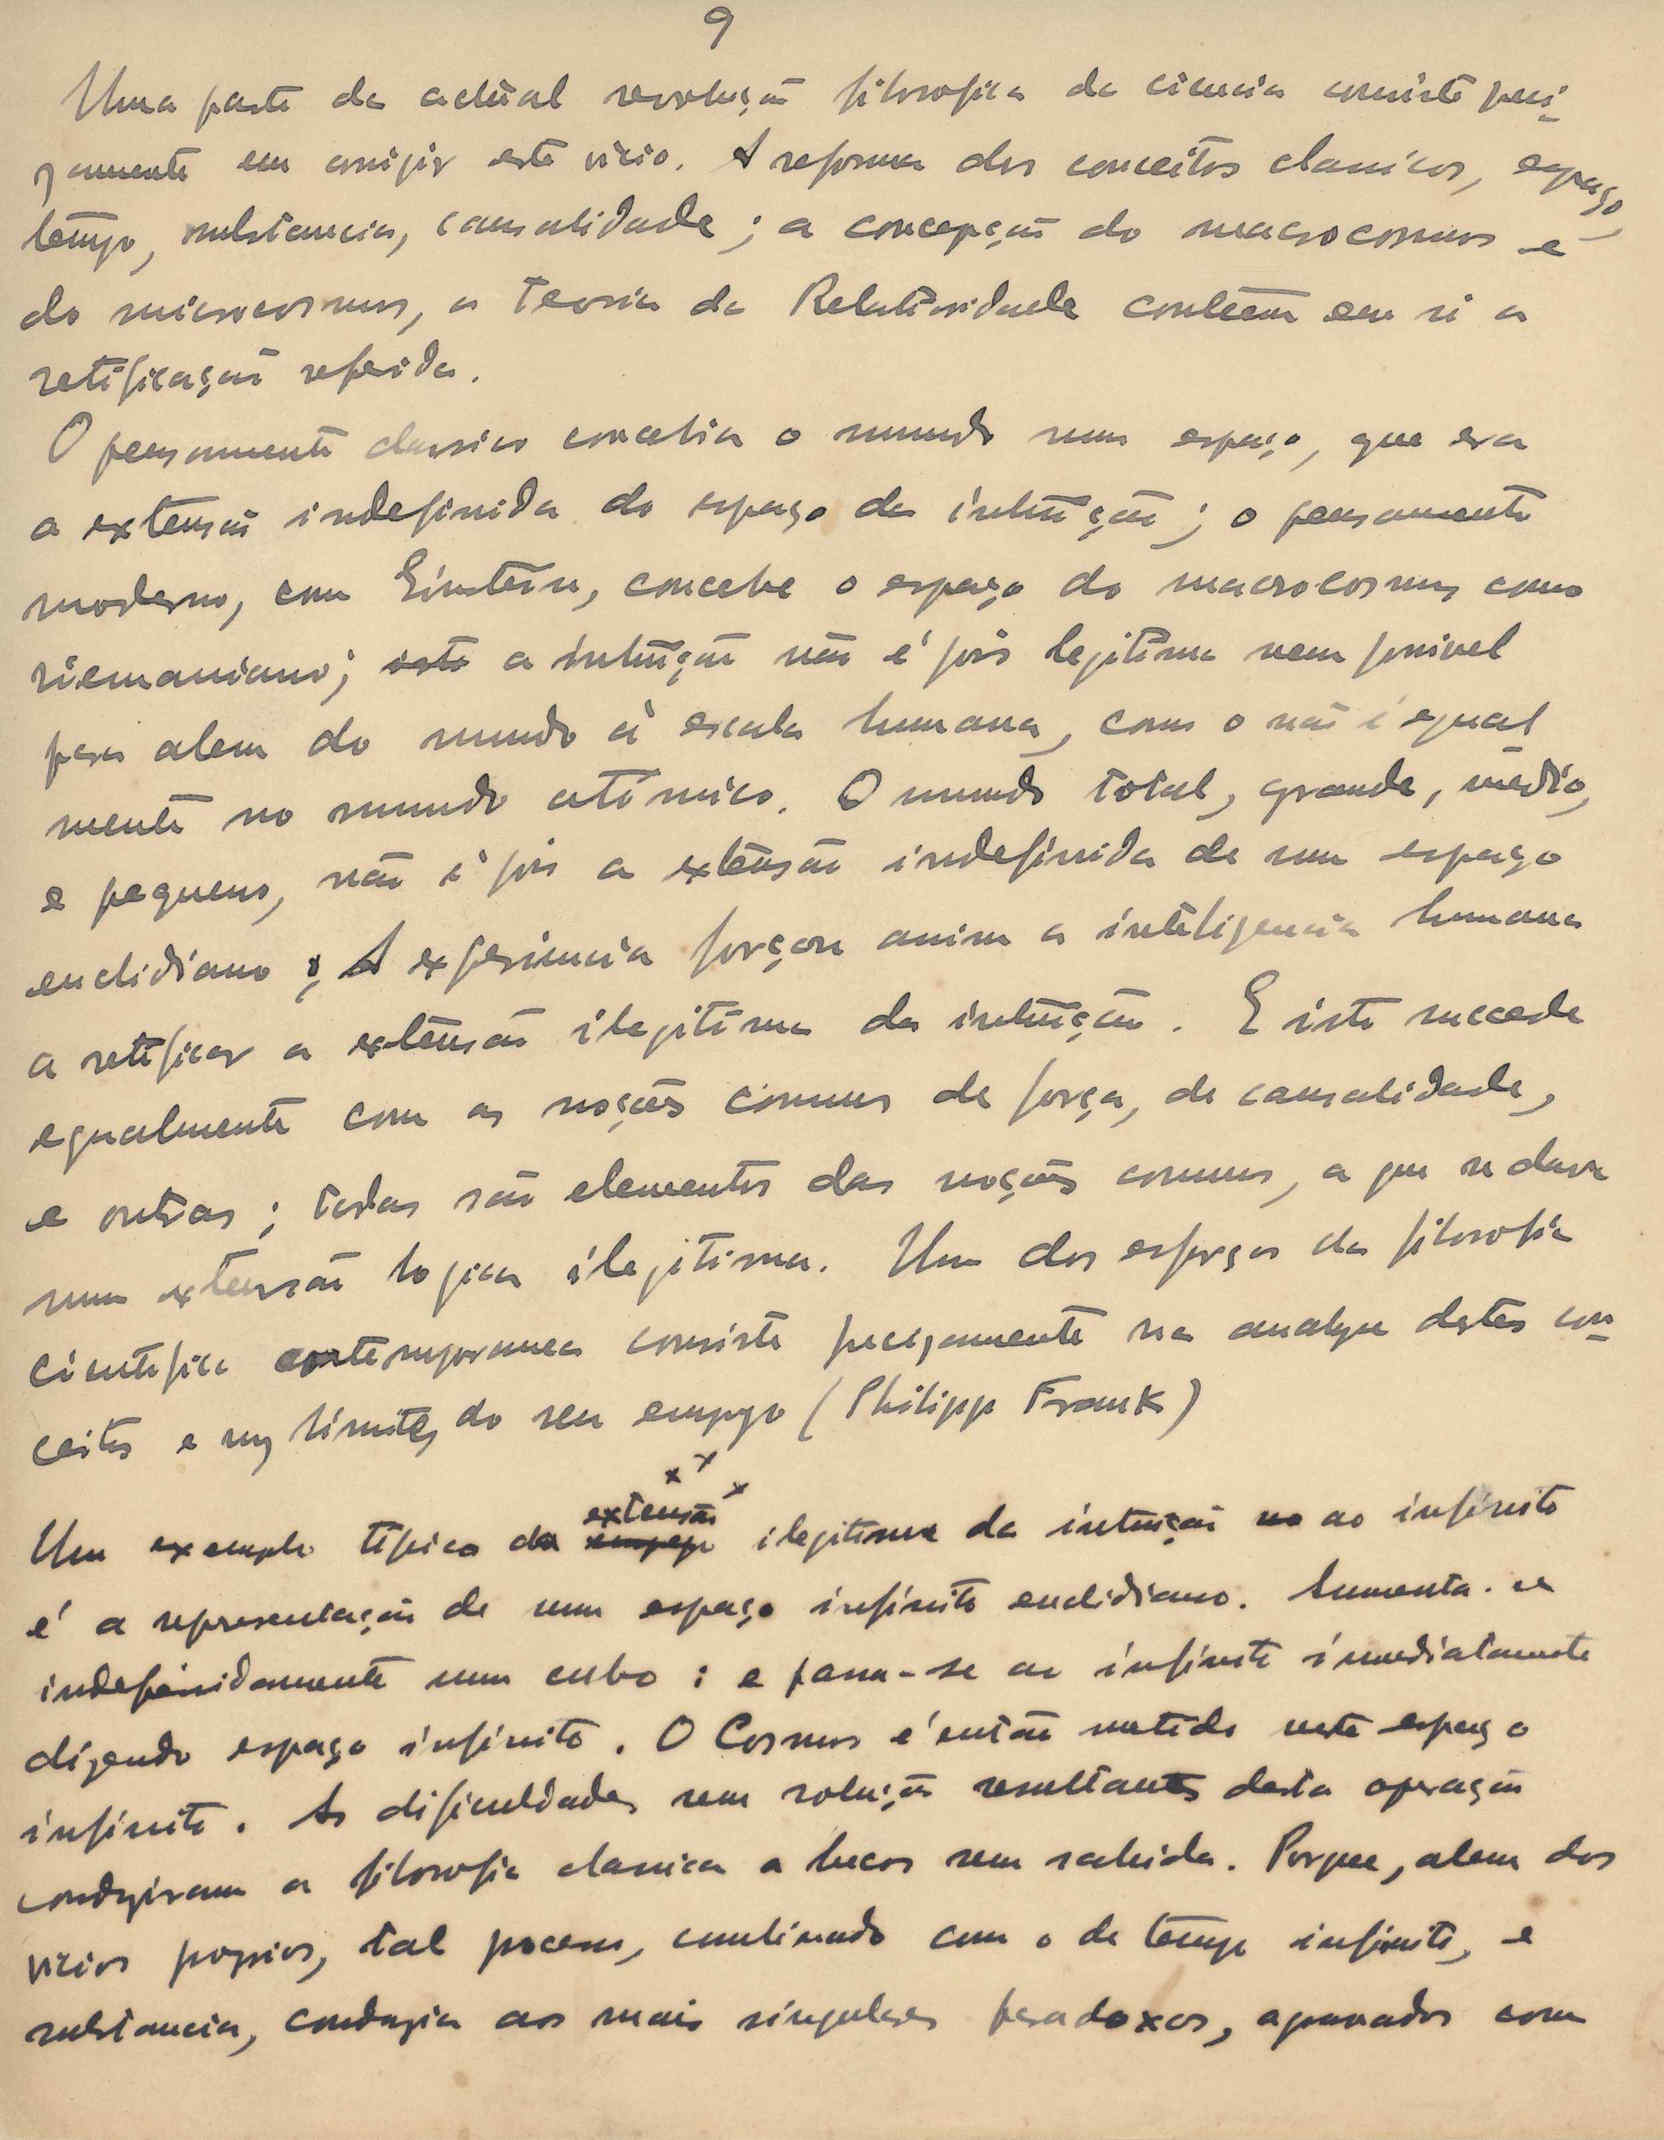 9
Uma parte da actual revolução filosofica da ciencia consiste preci-
zamente em corrigir este vicio. A reforma dos conceitos classicos, espaço,
tempo, substancia, causalidade; a concepção do macrocosmos e
do microcosmos, a Teoria da Relatividade contêem em si a
retificação referida.
O pensamento classico concebia o mundo num espaço, que era
a extensão indefinida do espaço da intuição; o pensamento
moderno, com Einstein, concebe o espaço do macrocosmos como
riemaniano; isto a intuição não é pois legitima nem possivel
para alem do mundo á escala humana, como o não é egual
mente no mundo atómico. O mundo total, grande, médio,
e pequeno, não é pois a extensão indefinida de um espaço
euclidiano; A experiencia forçou assim a inteligencia humana
a retificar a extensão ilegitima da intuição. E isto succede
egualmente com as noções comuns de força, de causalidade,
e outras; todas são elementos das noções comuns, a que se dava
uma extensão logica ilegitima. Um dos esforços da filosofia
cientifica contemporanea consiste precizamente na analyse destes con-
ceitos e nos limites do seu emprego (Philipp Frank)
x x x
extensão
Um exemplo tipico da emprego ilegitima da intuição no ao infinito
é a representação de um espaço infinito euclidiano. Aumenta-se
indefinidamente um cubo: e passa-se ao infinito imediatamente
dizendo espaço infinito. O Cosmos é então metido neste espaço
infinito. As dificuldades sem solução resultantes desta operação
conduziram a filosofia classica a becos sem sahida. Porque, alem dos
vicios proprios, tal processo, combinado com o de tempo infinito, e
substancia, conduzia aos mais singulares paradoxos, agravados com